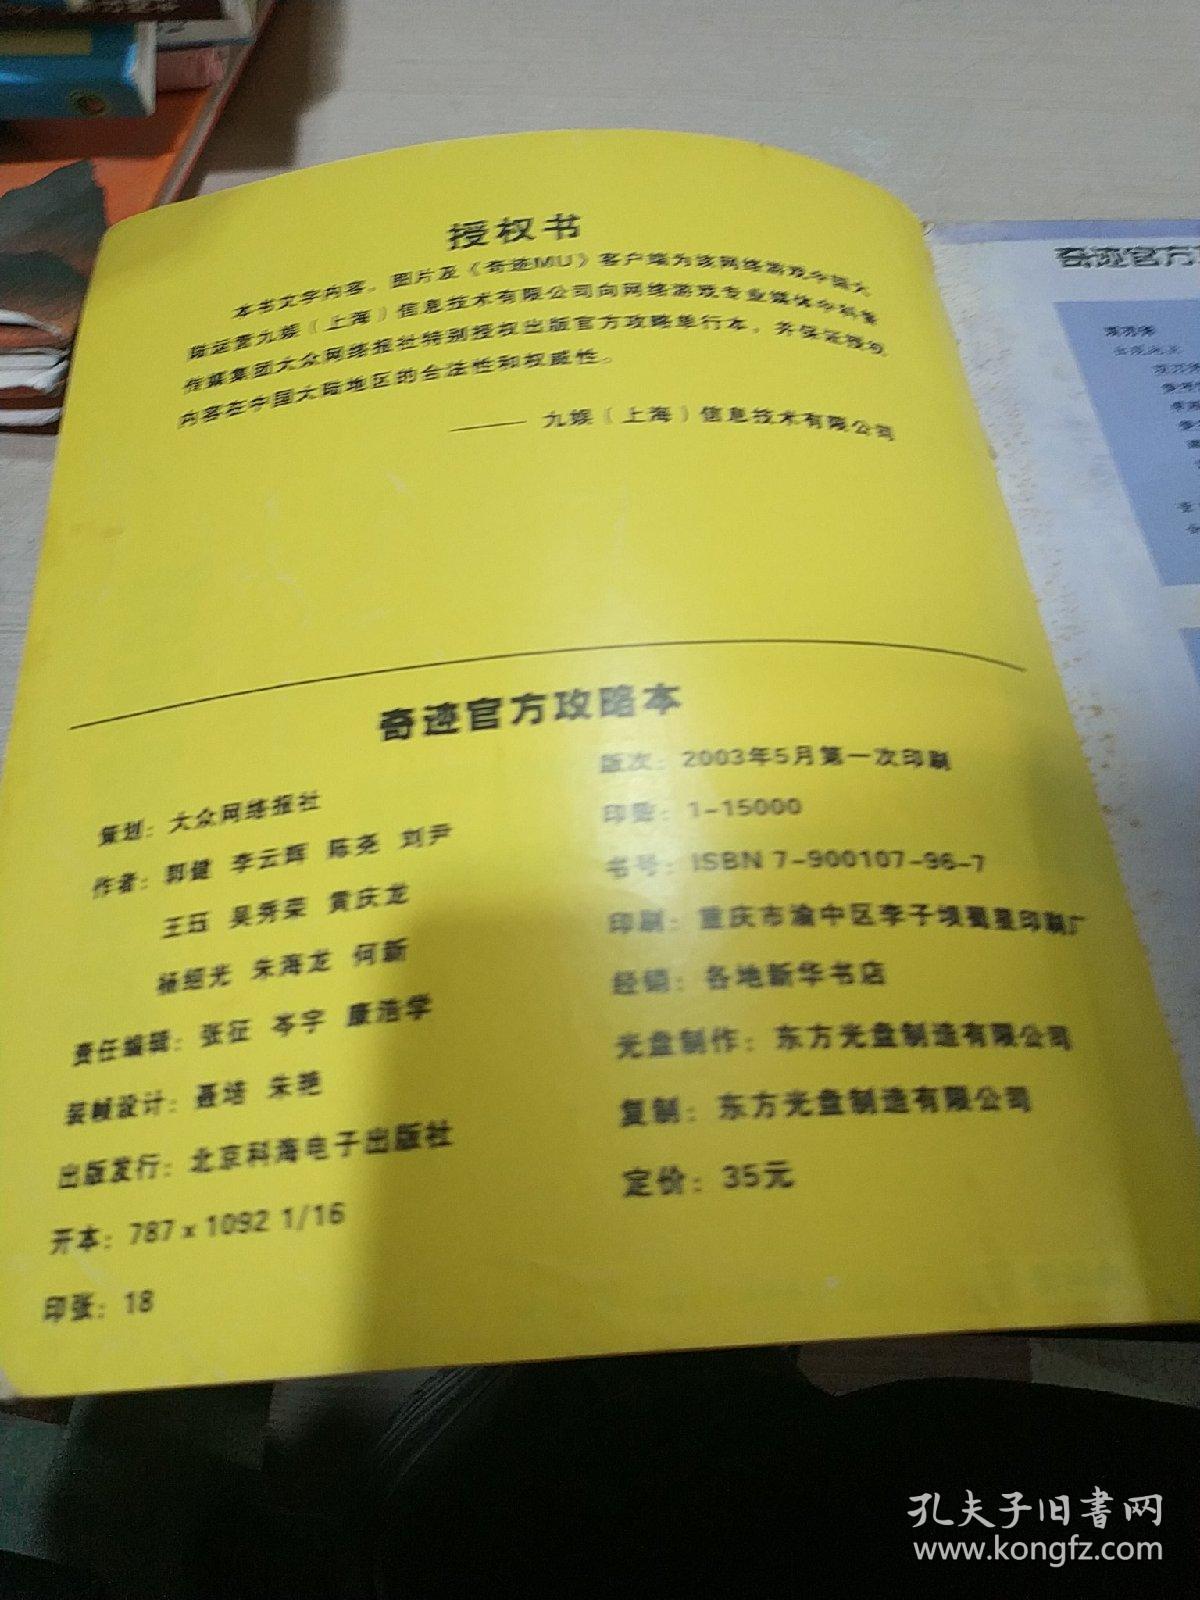 授权书
本书文字内容、图片及《奇迹MU》客户端为该网络游戏中国大
陆运营九娱（上海）信息技术有限公司向网络游戏专业媒体中科普
传媒集团大众网络报社特别授权出版官方攻略单行本，并保证授权
内容在中国大陆地区的合法性和权威性。
—— 九娱（上海）信息技术有限公司
奇迹官方攻略本
策划：大众网络报社
作者：郭健 李云辉 陈尧 刘尹
王珏 吴秀荣 黄庆龙
杨绍光 朱海龙 何新
责任编辑：张征 岑宇 康浩学
装帧设计：聂培 朱艳
出版发行：北京科海电子出版社
开本：787x1092 1/16
印张：18
版次：2003年5月第一次印刷
印数：1-15000
书号：ISBN 7-900107-96-7
印刷：重庆市渝中区李子坝蜀星印刷厂
经销：各地新华书店
光盘制作：东方光盘制造有限公司
复制：东方光盘制造有限公司
定价：35元
奇迹官方
孔夫子旧书网
www.kongfz.com